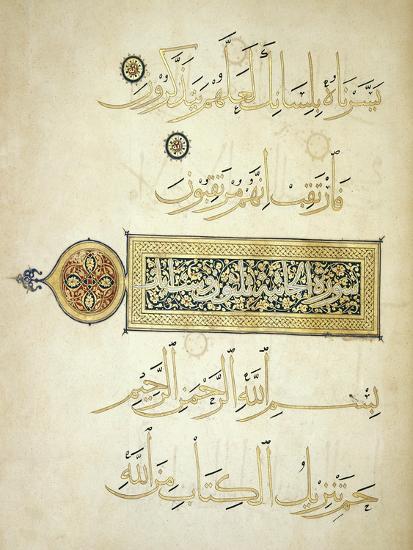 يَسَّرْنَاهُ بِلِسَانِكَ لَعَلَّهُمْ يَتَذَكَّرُونَ
فَارْتَقِبْ إِنَّهُمْ مُرْتَقِبُونَ
سورة الجاثية
بِسْمِ اللَّهِ الرَّحْمَنِ الرَّحِيمِ
حم تَنْزِيلُ الْكِتَابِ مِنَ اللَّهِ